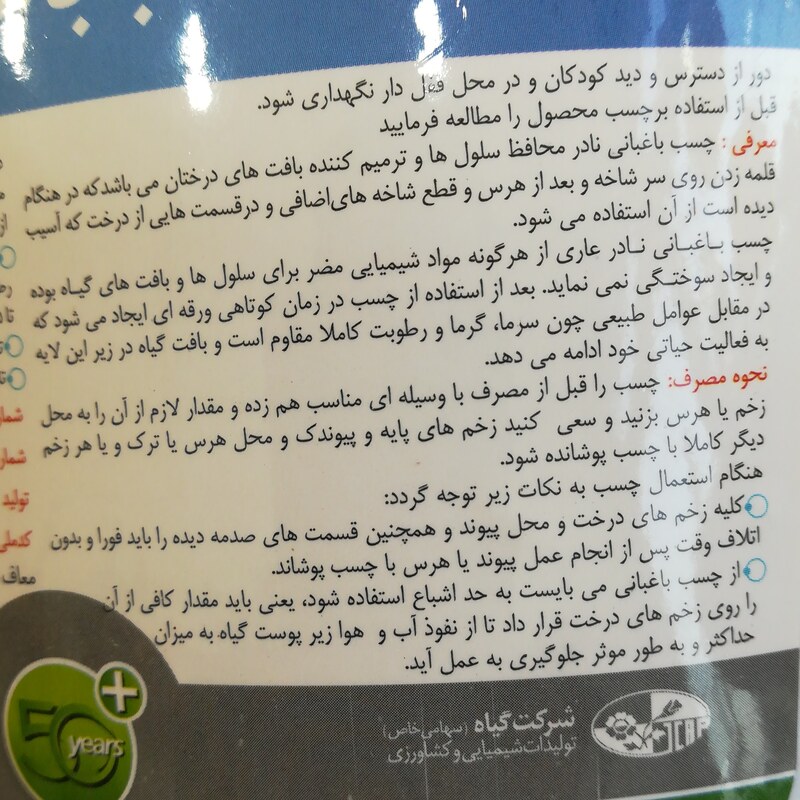 دور از دسترس و دید کودکان و در محل قفل دار نگهداری شود.
قبل از استفاده برچسب محصول را مطالعه فرمایید
معرفی : چسب باغبانی نادر محافظ سلول ها و ترمیم کننده بافت های درختان می باشدکه در هنگام
قلمه زدن روی سر شاخه و بعد از هرس و قطع شاخه های‌اضافی و درقسمت هایی از درخت که آسیب
دیده است از آن استفاده می شود.
چسب باغبانی نادر عاری از هرگونه مواد شیمیایی مضر برای سلول ها و بافت های گیاه بوده
و ایجاد سوختگی نمی نماید. بعد از استفاده از چسب در زمان کوتاهی ورقه ای ایجاد می شود که
در مقابل عوامل طبیعی چون سرما، گرما و رطوبت کاملا مقاوم است و بافت گیاه در زیر این لایه
به فعالیت حیاتی خود ادامه می دهد.
نحوه مصرف: چسب را قبل از مصرف با وسیله ای مناسب هم زده و مقدار لازم از آن را به محل
زخم یا هرس بزنید و سعی کنید زخم های پایه و پیوندک و محل هرس یا ترک و یا هر زخم
دیگر کاملا با چسب پوشانده شود.
هنگام استعمال چسب به نکات زیر توجه گردد:
کلیه زخم های درخت و محل پیوند و همچنین قسمت های صدمه دیده را باید فورا و بدون
اتلاف وقت پس از انجام عمل پیوند یا هرس با چسب پوشاند.
از چسب باغبانی می بایست به حد اشباع استفاده شود، یعنی باید مقدار کافی از آن
را روی زخم های درخت قرار داد تا از نفوذ آب و هوا زیر پوست گیاه به میزان
حداکثر و به طور موثر جلوگیری به عمل آید.
شرکت گیاه (سهامی خاص)
تولیدات شیمیایی و کشاورزی
50+ years
تولید
معاف